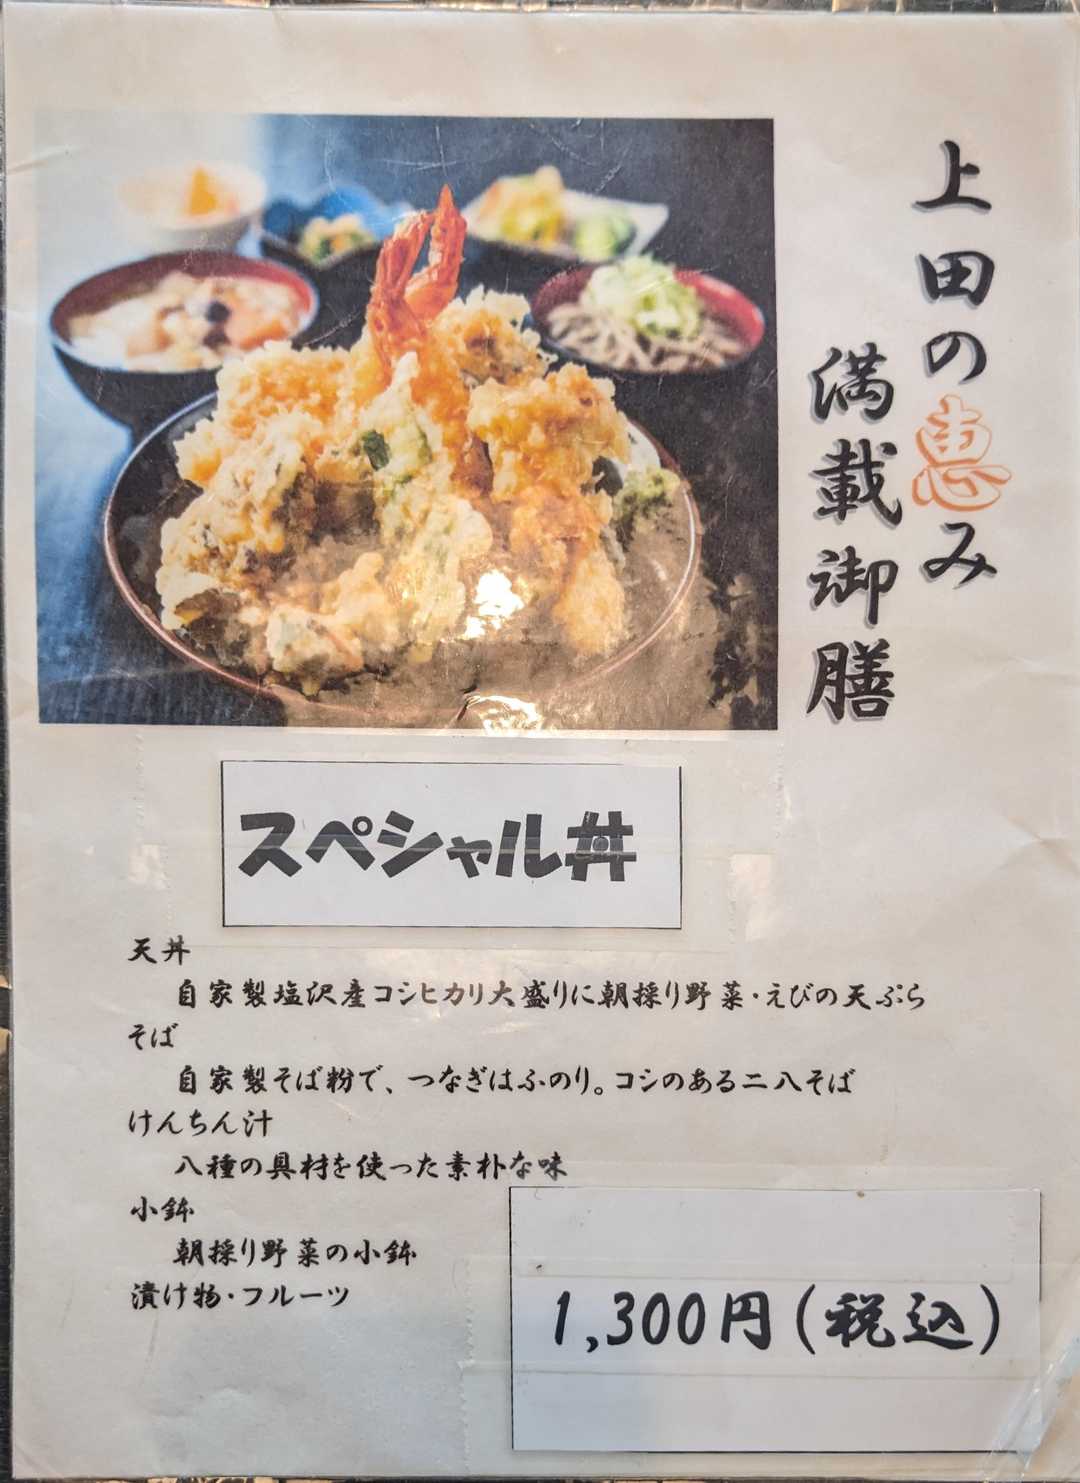 上田の恵み
満載御膳
スペシャル丼
天丼
自家製塩沢産コシヒカリ大盛りに朝採り野菜・えびの天ぷら
そば
自家製そば粉で、つなぎはふのり。コシのある二八そば
けんちん汁
八種の具材を使った素朴な味
小鉢
朝採り野菜の小鉢
漬け物・フルーツ
1,300円(税込)